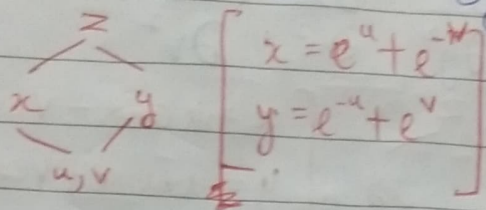 z
x y
u, v
x = e^u + e^-v
y = e^-u + e^v